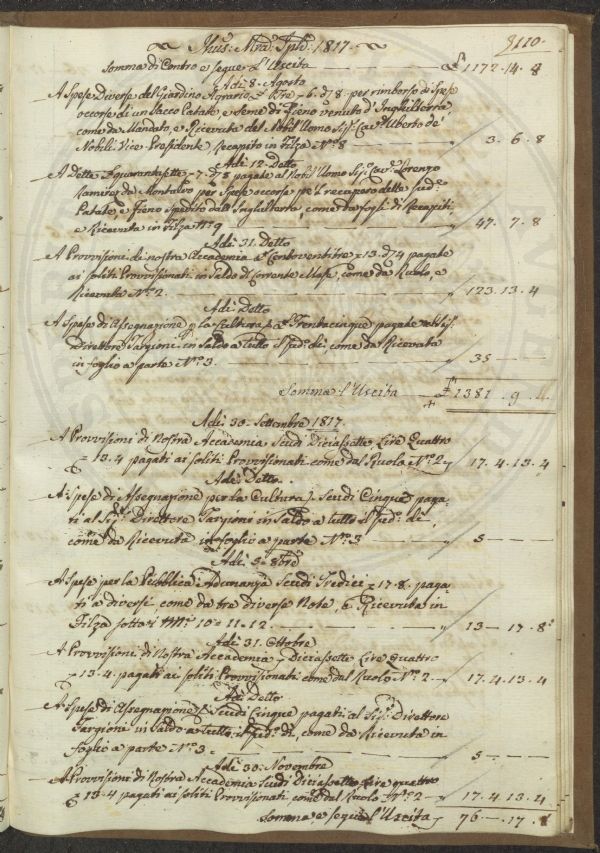 110.
1817.
Somma di Contro e segue l'Uscita £ 1172.14.8
Adi 8. Agosto
A Spese Diverse del Giardino Agrario £ Tre - 6. d 8. per rimborso di Spese
occorse di un Sacco Patate, e Seme di Fieno venuto d'Inghilterra
come da Mandato, e Ricevuta del Nobil Uomo Sig. Cav. Uberto de'
Nobili Vice Presidente recapito in Filza N.° 8 3.6.8
Adi 12. Detto
A Dette £ quarantasette - 7. d 8 pagate al Nobil Uomo Sig. Cav. Lorenzo
Ramirez da Montalvo per Spese occorse pel recapero delle sud.e
Patate, e Fieno Spedito dall'Inghilterra, come da fogli di Recapiti
e Ricevuta in Filza N.° 9 47.7.8
Adi 31. Detto
A Provvisioni di nostra Accademia £ Centoventitre = 13. d 4 pagate
ai soliti Provvisionati in Saldo di Corrente Mese, come da Ruolo, e
Ricevuta N.° 2. 123.13.4
Adi Detto
A Spese di Assegnazione p. la Cultura £ Trentacinque pagate al Sig.
Direttore Targioni in Saldo a tutto il sud. dì, come da Ricevuta
in foglio a parte N.° 3. 35
Somma l'Uscita £ 1381.9.4
Adi 30. Settembre 1817.
A Provvisioni di Nostra Accademia Scudi Diciassette Lire Quattro
e 13.4 pagati ai soliti Provvisionati come dal Ruolo N.° 2 17.4.13.4
Adi Detto.
A Spese di Assegnazione per la Cultura Scudi Cinque paga-
ti al Sig. Direttore Targioni in Saldo a tutto il sud.° dì
come da Ricevuta in foglio a parte N.° 3 5
Adi 3. 8bre
A Spese per la Pubblica Adunanza Scudi Tredici = 17.8. paga-
ti a diversi come da tre diverse Note, e Ricevuta in
Filza sotto i NN.i 10 e 11. 12. 13 — 17.8
Adi 31. Ottobre
A Provvisioni di Nostra Accademia Diciassette Lire Quattro
e 13.4 pagati ai soliti Provvisionati come dal Ruolo N.° 2 17.4.13.4
Adi Detto.
A Spese di Assegnazione Scudi Cinque pagati al Sig. Direttore
Targioni in Saldo a tutto il sud. dì, come da Ricevuta in
foglio a parte N.° 3 5
Adi 30. Novembre
A Provvisioni di Nostra Accademia Scudi Diciassette Lire quattro
e 13.4 pagati ai soliti Provvisionati come dal Ruolo N.° 2 17.4.13.4
Somma e segue l'Uscita 76 — 17.8